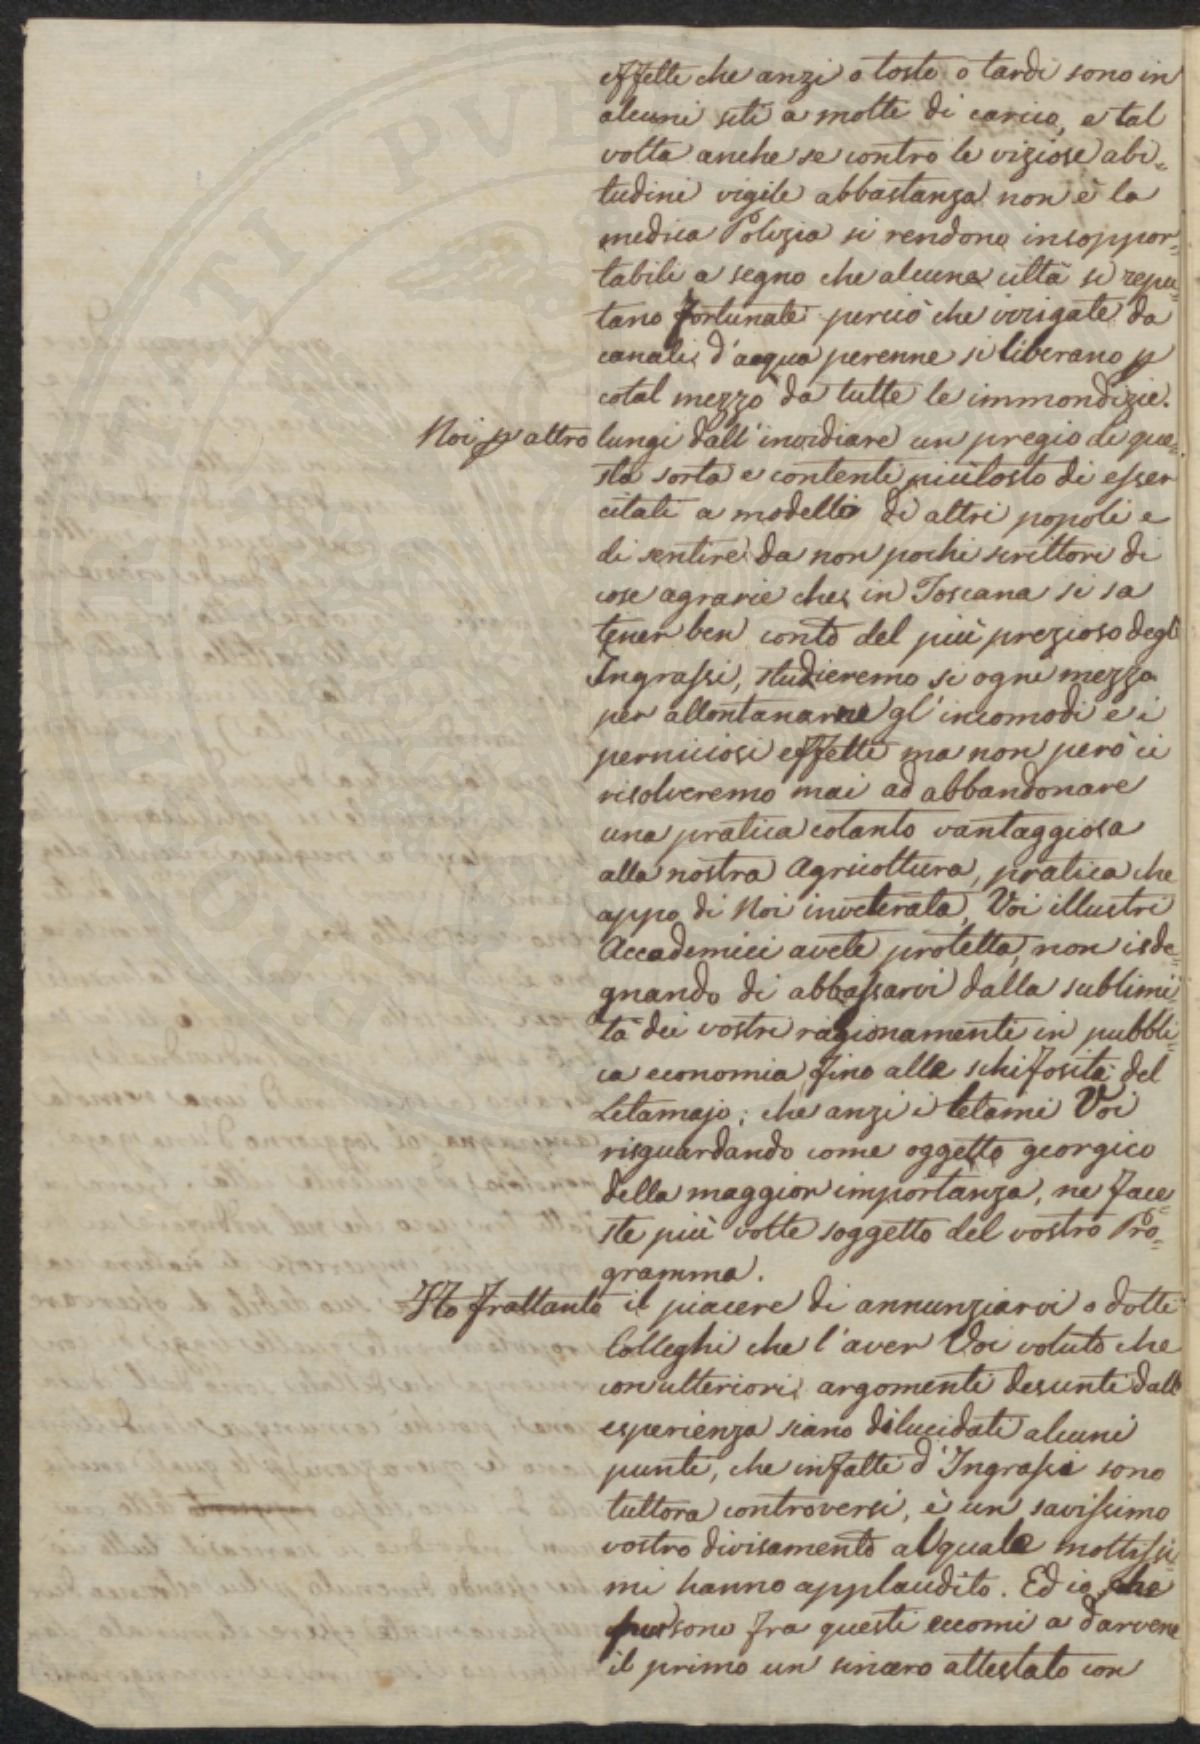 effetti che anzi o tosto o tardi sono in
alcuni siti a molti di carico, e tal
volta anche se contro le viziose abi=
tudini vigile abbastanza non è la
medica Polizia si rendono insoppor=
tabili a segno che alcune città si repu=
tano fortunate perciò che irrigate da
canali d'acqua perenne si liberano p
cotal mezzo da tutte le immondizie.
Noi p altro lungi dall'invidiare un pregio di que=
sta sorta e contenti piuttosto di esser
citati a modello di altri popoli e
di sentire da non pochi scrittori di
cose agrarie che in Toscana si sa
tener ben conto del più prezioso degli
Ingrassi, studieremo si ogni mezzo
per allontanarne gl'incomodi e i
perniciosi effetti ma non però ci
risolveremo mai ad abbandonare
una pratica cotanto vantaggiosa
alla nostra Agricoltura, pratica che
appo di Noi inveterata, Voi illustri
Accademici avete protetta, non isde=
gnando di abbassarvi dalla sublimi=
tà dei vostri ragionamenti in pubbli=
ca economia fino alle schifosità del
Letamajo; che anzi i letami Voi
risguardando come oggetto georgico
della maggior importanza, ne face=
ste più volte soggetto del vostro Pro=
gramma.
Ho frattanto il piacere di annunziarvi o dotti
Colleghi che l'aver Voi voluto che
con ulteriori argomenti desunti dall'
esperienza siano dilucidati alcuni
punti, che in fatti d'Ingrassi sono
tuttora controversi, è un savissimo
vostro divisamento al quale moltissi=
mi hanno applaudito. Ed io che
pur sono fra questi eccomi a darvene
il primo un sincero attestato con